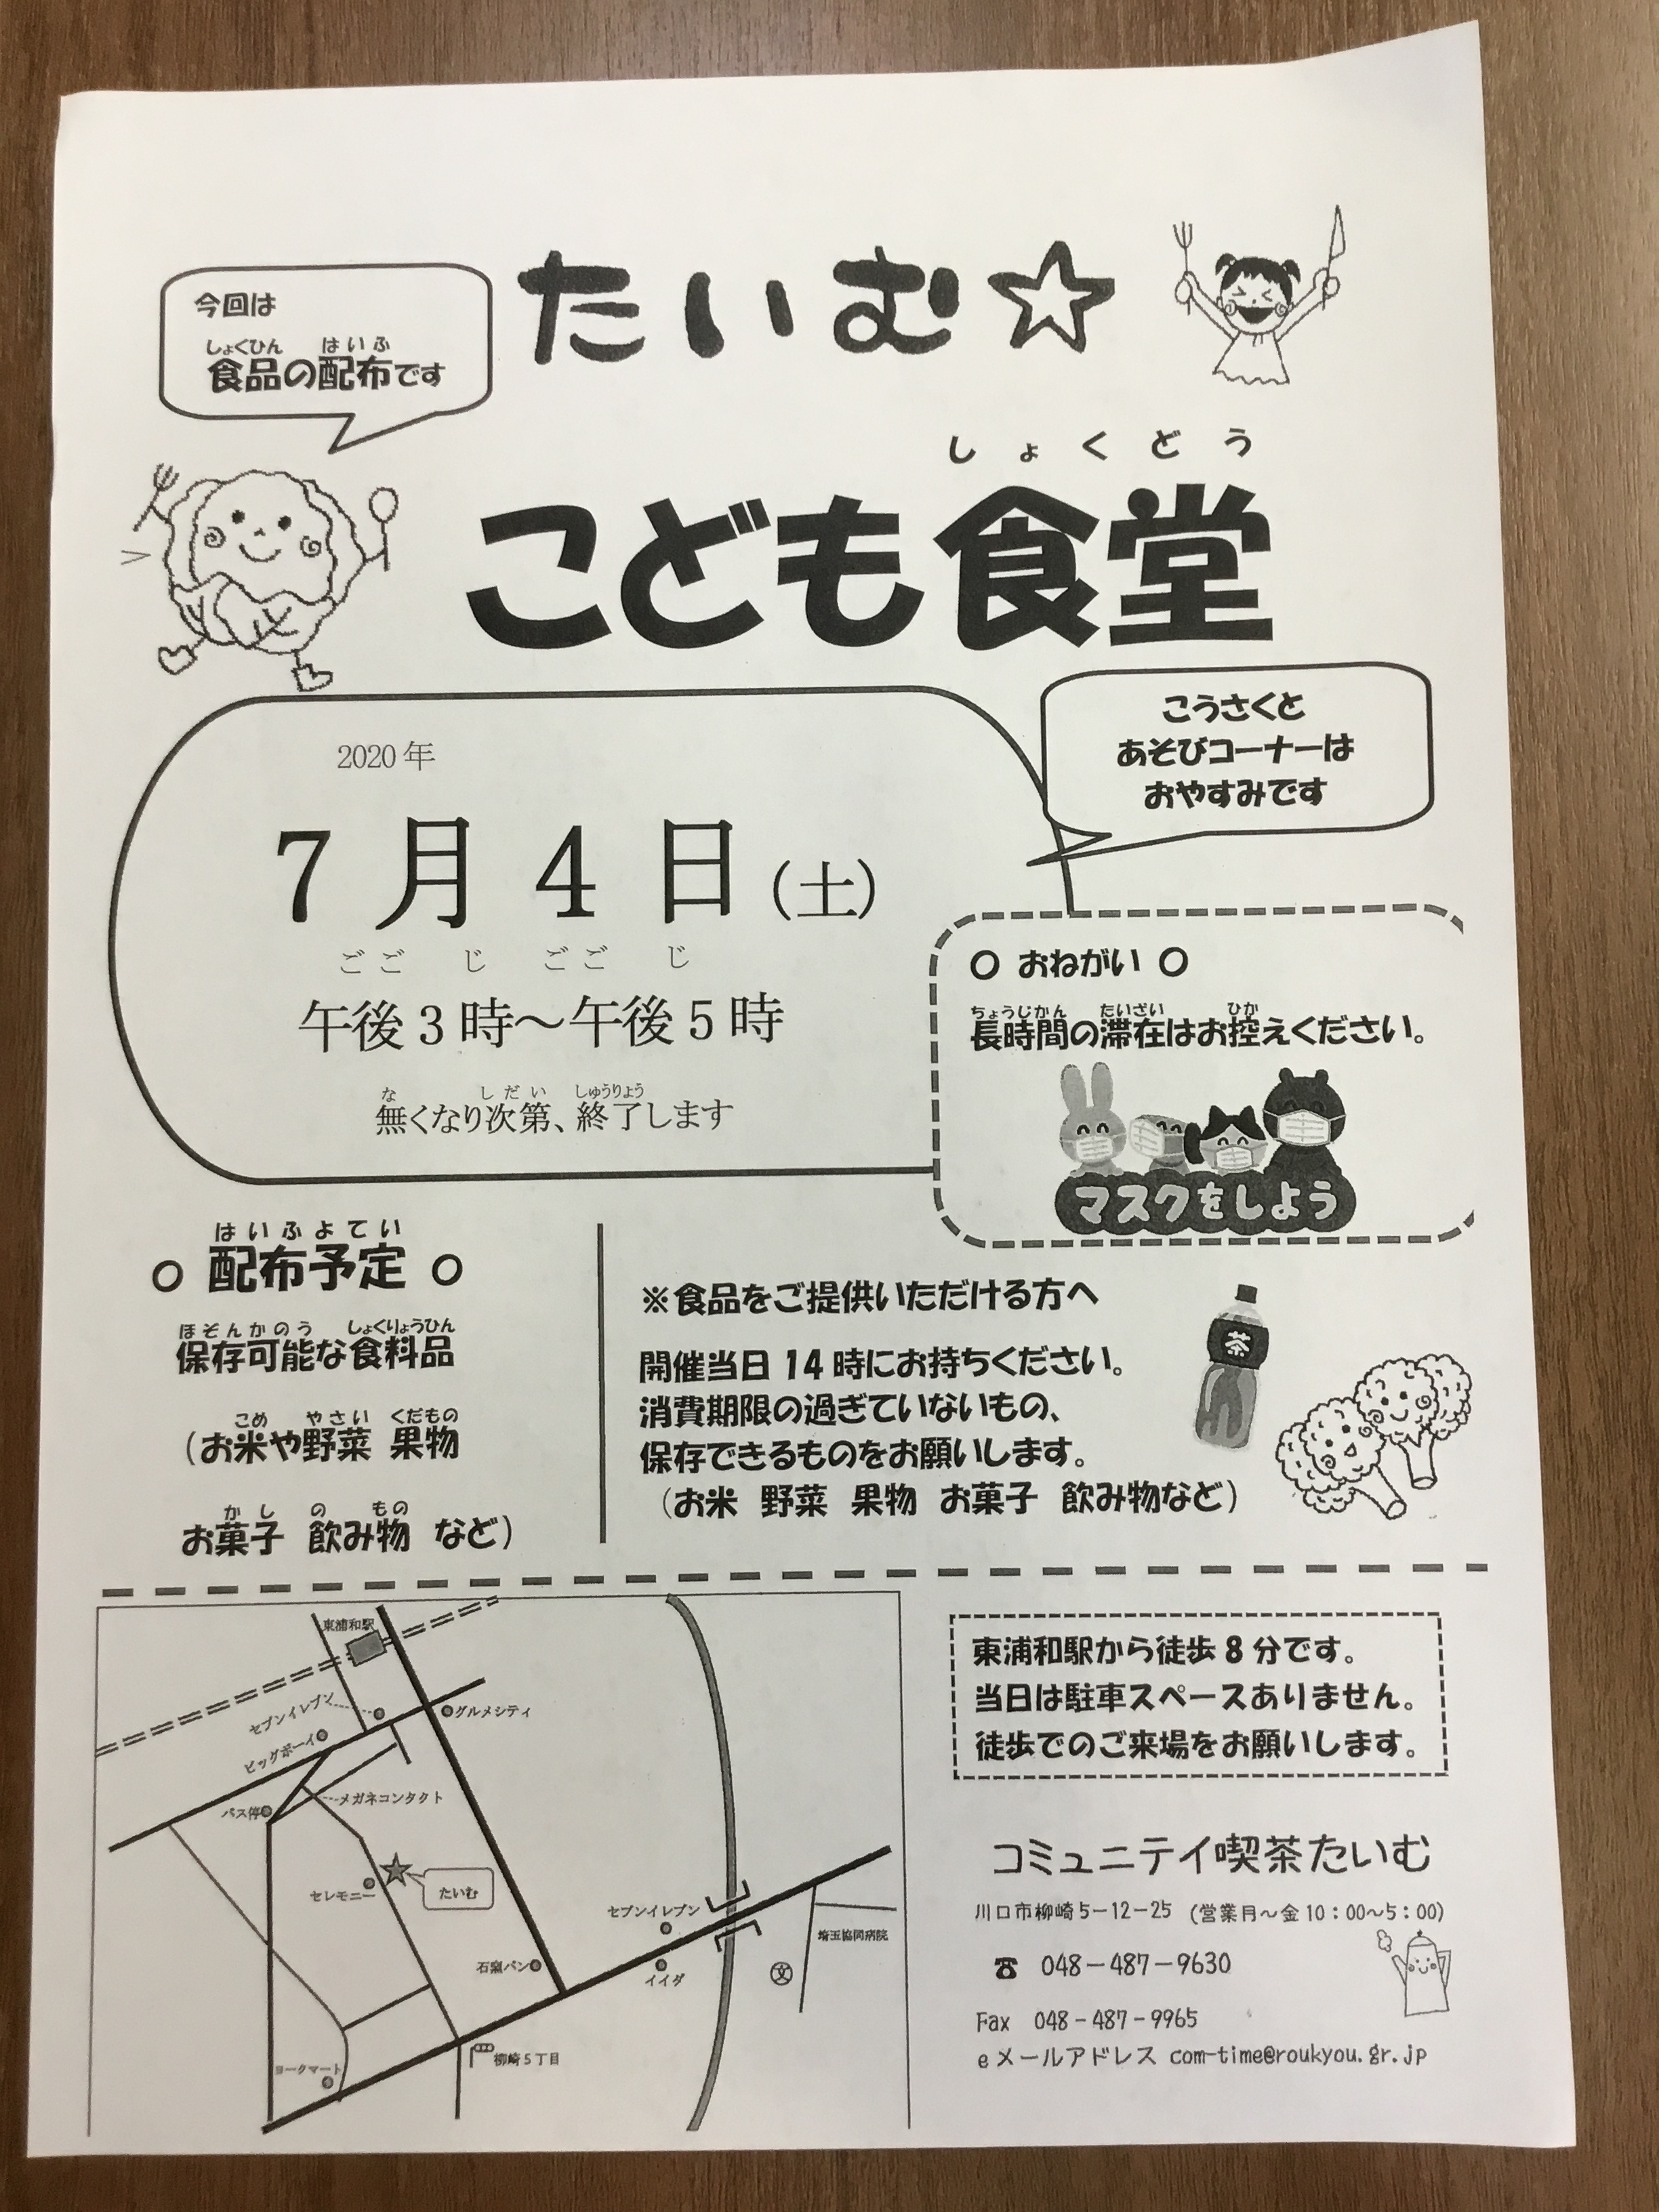 今回は
しょくひん はいふ
食品の配布です
たいむ☆
しょくどう
こども食堂
2020年
7月4日(土)
ごご じ ごご じ
午後3時～午後5時
な しだい しゅうりょう
無くなり次第、終了します
こうさくと
あそびコーナーは
おやすみです
○ おねがい ○
ちょうじかん たいざい ひか
長時間の滞在はお控えください。
マスクをしよう
はいふよてい
○ 配布予定 ○
ほぞんかのう しょくりょうひん
保存可能な食料品
こめ やさい くだもの
(お米や野菜 果物
かし の もの
お菓子 飲み物 など)
※食品をご提供いただける方へ
開催当日14時にお持ちください。
消費期限の過ぎていないもの、
保存できるものをお願いします。
(お米 野菜 果物 お菓子 飲み物など)
茶
東浦和駅
セブンイレブン
グルメシティ
ビッグボーイ
バス停
メガネコンタクト
セレモニー
たいむ
セブンイレブン
石窯パン
イイダ
文
埼玉協同病院
柳崎5丁目
ヨークマート
東浦和駅から徒歩8分です。
当日は駐車スペースありません。
徒歩でのご来場をお願いします。
コミュニテイ喫茶たいむ
川口市柳崎5-12-25 (営業月～金10:00～5:00)
☎ 048-487-9630
Fax 048-487-9965
eメールアドレス com-time@roukyou.gr.jp